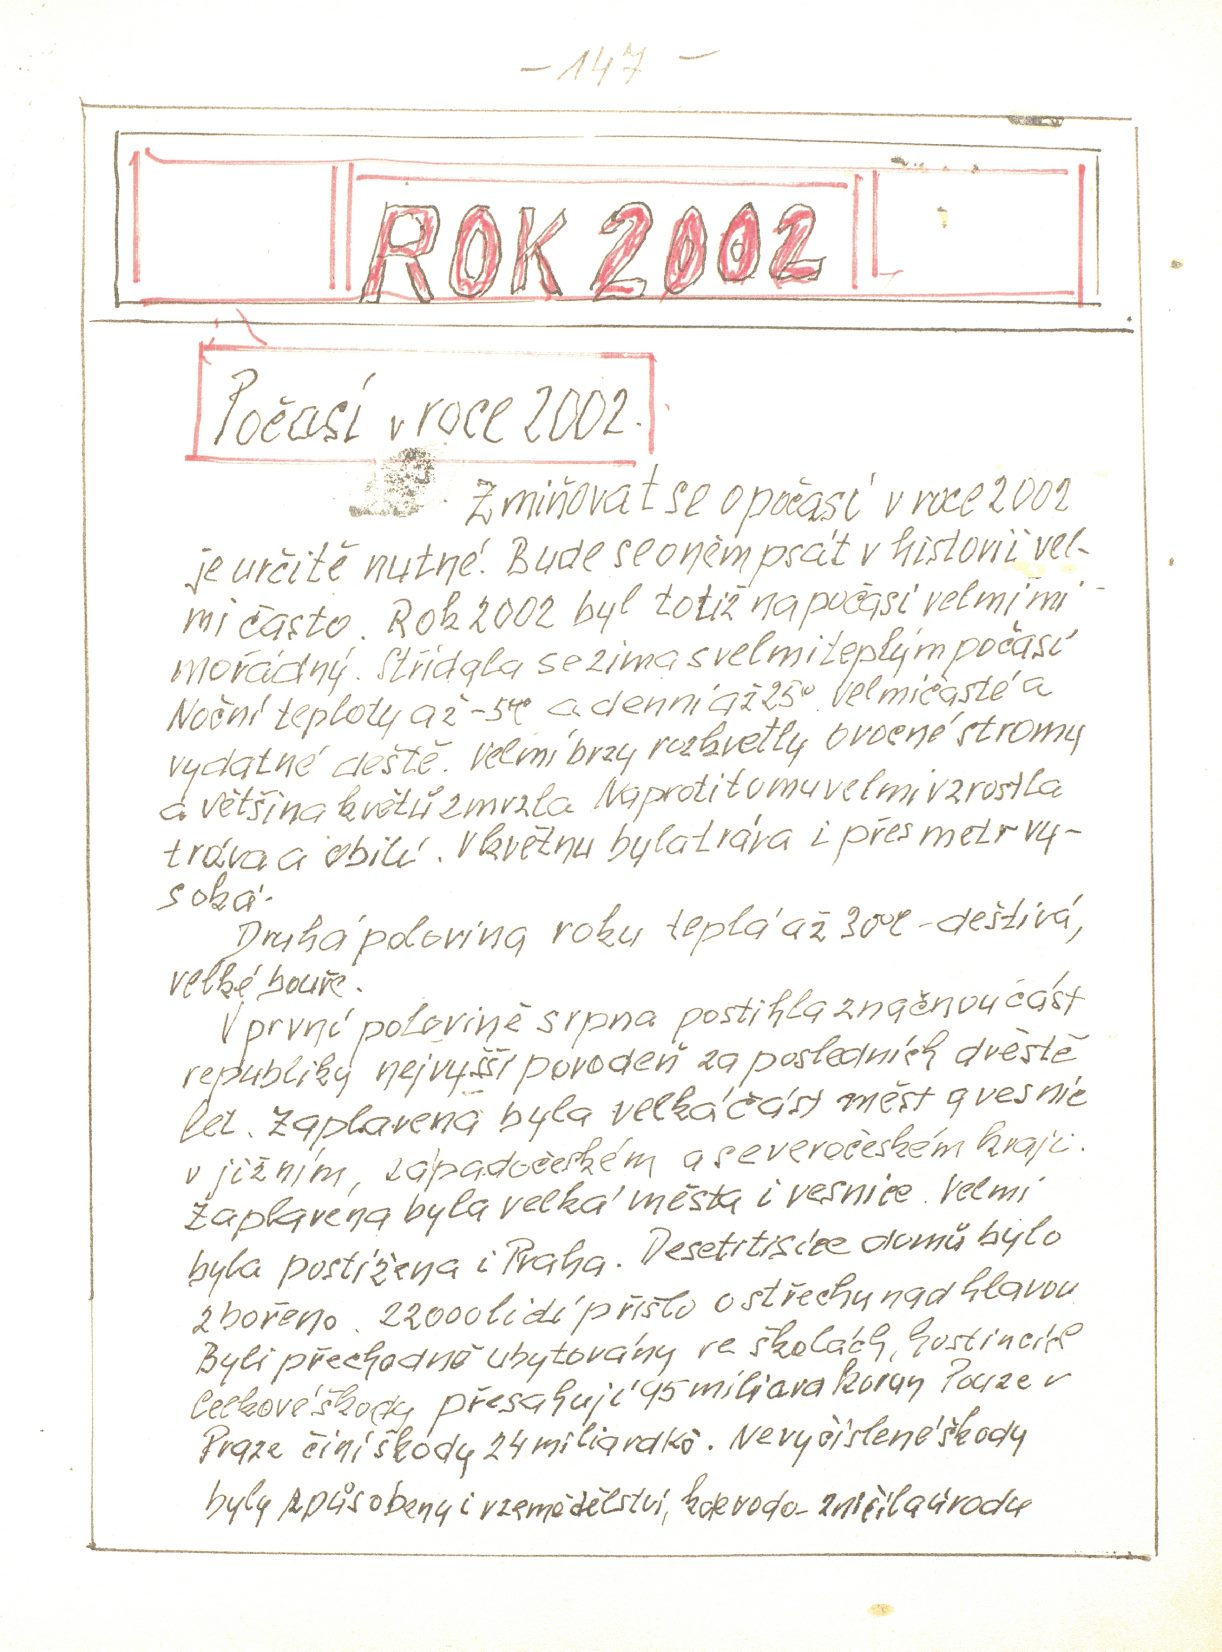 - 147 -
ROK 2002
Počasí v roce 2002.
Zmiňovat se o počasí v roce 2002
je určitě nutné. Bude se o něm psát v historii vel-
mi často. Rok 2002 byl totiž na počasí velmi mi-
mořádný. Střídala se zima s velmi teplým počasí
Noční teploty až -5°C a denní až 25°. Velmi časté a
vydatné deště. Velmi brzy rozkvetly ovocné stromy
a většina květů zmrzla. Naproti tomu velmi vzrostla
tráva a obilí. V květnu byla tráva i přes metr vy-
soká.
Druhá polovina roku teplá až 30°C - deštivá,
velké bouře.
V první polovině srpna postihla značnou část
republiky nejvyšší povodeň za posledních dvěstě
let. Zaplavena byla velká část měst a vesnic
v jižním, západočeském a severočeském kraji.
Zaplavena byla velká města i vesnice. Velmi
byla postižena i Praha. Desetitisíce domů bylo
zbořeno. 22000 lidí přišlo o střechu nad hlavou
Byli přechodně ubytovány ve školách, hostincích
Celkové škody přesahují 95 miliard korun Pouze v
Praze činí škody 24 miliard kč. Nevyčíslené škody
byly způsobeny i v zemědělství, kde voda zničila úrodu